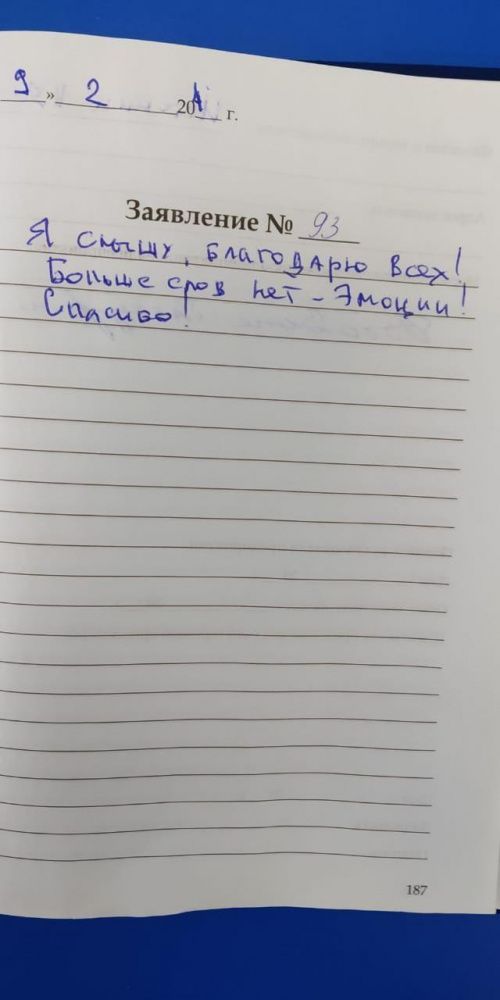 9 » 2 20 г.
Заявление № 93
Я слышу, благодарю всех!
Больше слов нет - Эмоции!
Спасибо!
187